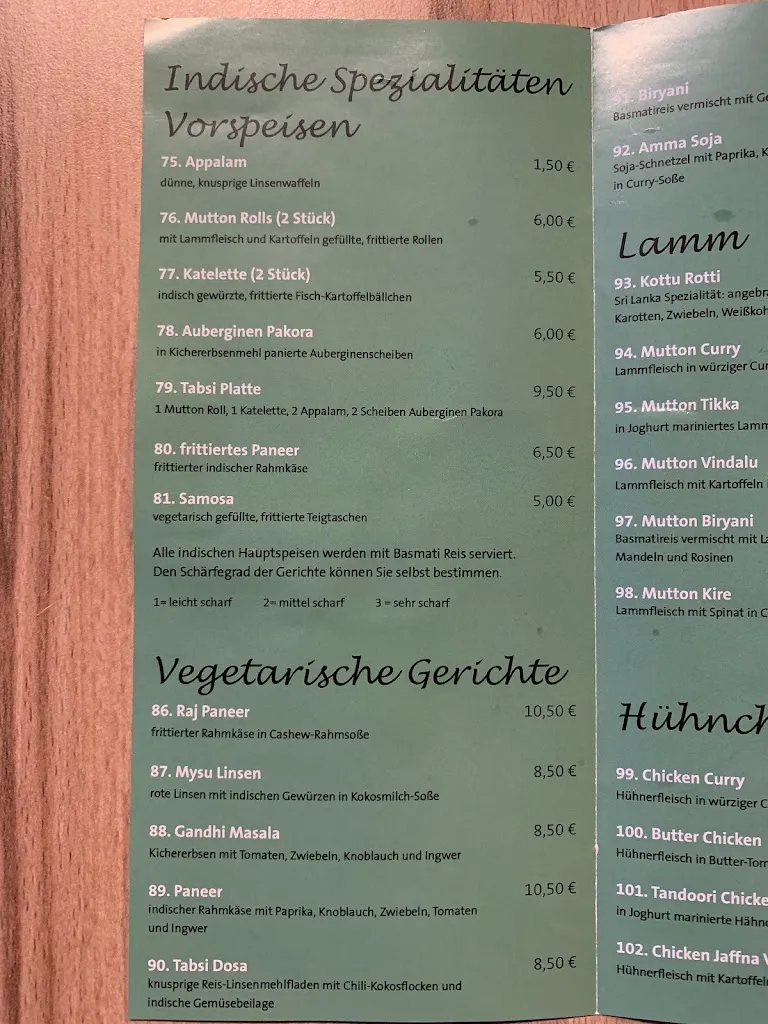 Indische Spezialitäten
Vorspeisen
75. Appalam 1,50 €
dünne, knusprige Linsenwaffeln
76. Mutton Rolls (2 Stück) 6,00 €
mit Lammfleisch und Kartoffeln gefüllte, frittierte Rollen
77. Katelette (2 Stück) 5,50 €
indisch gewürzte, frittierte Fisch-Kartoffelbällchen
78. Auberginen Pakora 6,00 €
in Kichererbsenmehl panierte Auberginenscheiben
79. Tabsi Platte 9,50 €
1 Mutton Roll, 1 Katelette, 2 Appalam, 2 Scheiben Auberginen Pakora
80. frittiertes Paneer 6,50 €
frittierter indischer Rahmkäse
81. Samosa 5,00 €
vegetarisch gefüllte, frittierte Teigtaschen
Alle indischen Hauptspeisen werden mit Basmati Reis serviert.
Den Schärfegrad der Gerichte können Sie selbst bestimmen.
1= leicht scharf 2= mittel scharf 3 = sehr scharf
Vegetarische Gerichte
86. Raj Paneer 10,50 €
frittierter Rahmkäse in Cashew-Rahmsoße
87. Mysu Linsen 8,50 €
rote Linsen mit indischen Gewürzen in Kokosmilch-Soße
88. Gandhi Masala 8,50 €
Kichererbsen mit Tomaten, Zwiebeln, Knoblauch und Ingwer
89. Paneer 10,50 €
indischer Rahmkäse mit Paprika, Knoblauch, Zwiebeln, Tomaten
und Ingwer
90. Tabsi Dosa 8,50 €
knusprige Reis-Linsenmehlfladen mit Chili-Kokosflocken und
indische Gemüsebeilage
91. Biryani
Basmatireis vermischt mit
92. Amma Soja
Soja-Schnetzel mit Paprika,
in Curry-Soße
Lamm
93. Kottu Rotti
Sri Lanka Spezialität:
Karotten, Zwiebeln,
94. Mutton Curry
Lammfleisch in würziger
95. Mutton Tikka
in Joghurt mariniertes
96. Mutton Vindalu
Lammfleisch mit Kartoffeln
97. Mutton Biryani
Basmatireis vermischt mit
Mandeln und Rosinen
98. Mutton Kire
Lammfleisch mit Spinat in
Hühnch
99. Chicken Curry
Hühnerfleisch in würziger
100. Butter Chicken
Hühnerfleisch in Butter-Tom
101. Tandoori Chicke
in Joghurt marinierte
102. Chicken Jaffna
Hühnerfleisch mit Kartoffeln